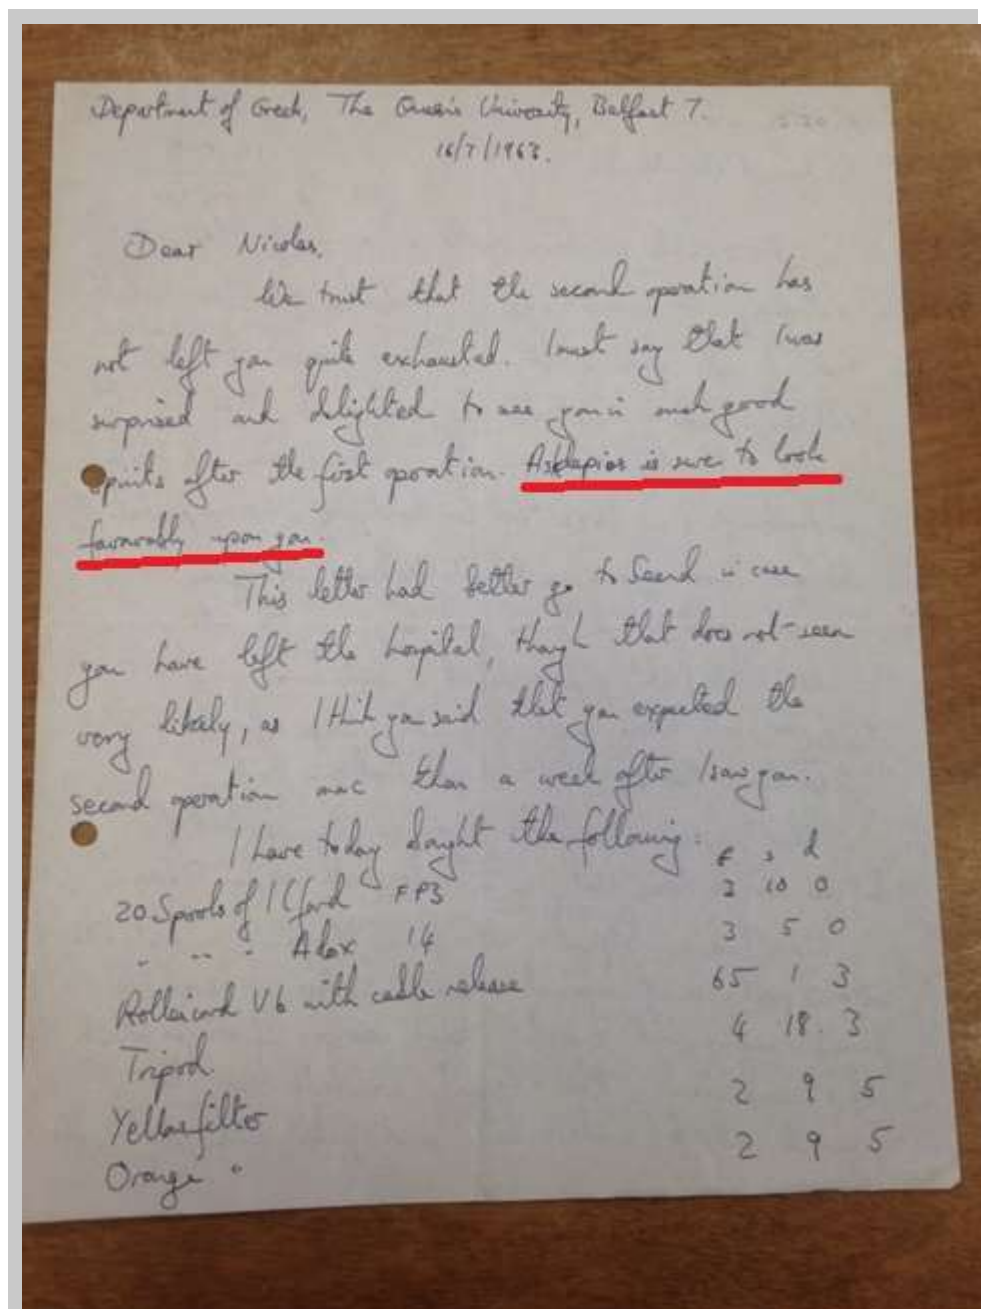 Department of Greek, The Queen's University, Belfast 7.
16/7/1963.
Dear Nicolas,
We trust that the second operation has
not left you quite exhausted. I must say that I was
surprised and delighted to see you in such good
spirits after the first operation. Asklepios is sure to look
favourably upon you.
This letter had better go to Seend in case
you have left the hospital, though that does not seem
very likely, as I think you said that you expected the
second operation more than a week after I saw you.
I have today bought the following: £ s d
20 Spools of Ilford FP3 10 0
" " " Adox 14 3 5 0
Rolleicord Vb with cable release 65 1 3
Tripod 4 18. 3
Yellow filter 2 9 5
Orange " 2 9 5